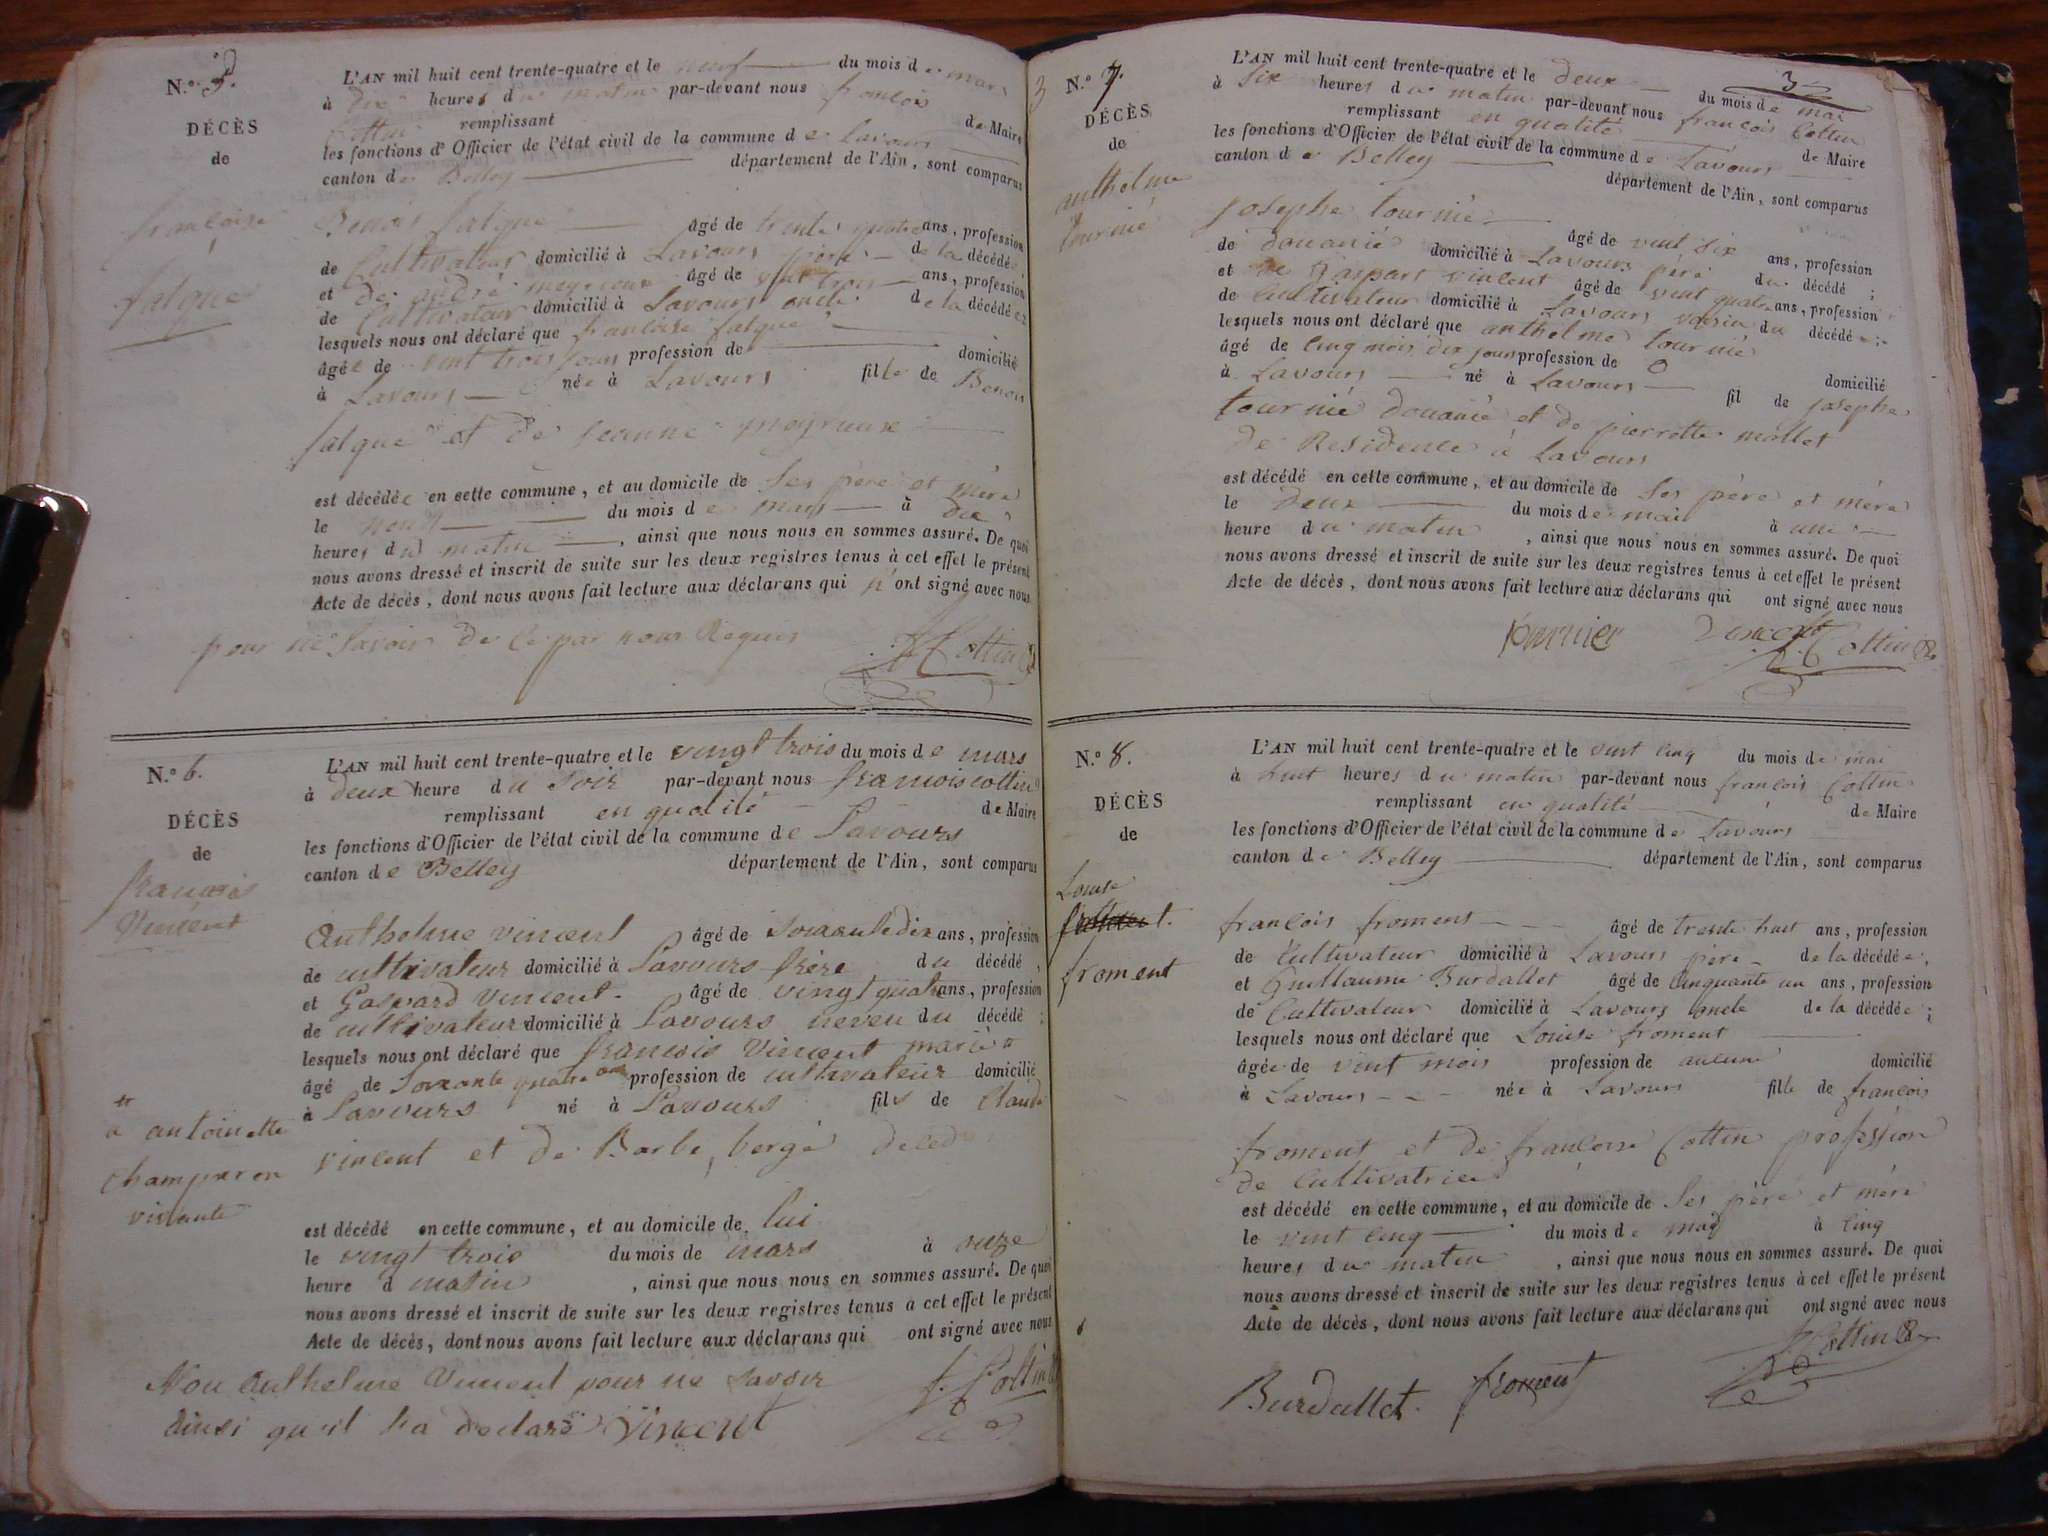 N.º 5.
DÉCÈS
de
françoise
falque
L'AN mil huit cent trente-quatre et le neuf du mois de mars
à dix heures du matin par-devant nous françois
Cottin remplissant de Maire
les fonctions d'Officier de l'état civil de la commune de Lavours
canton de Belley département de l'Ain, sont comparus
Benoit falque âgé de trente quatre ans, profession
de Cultivateur domicilié à Lavours père de la décédée
et de andré meyrieux âgé de vint trois ans, profession
de Cultivateur domicilié à Lavours oncle de la décédée
lesquels nous ont déclaré que francoise falque
âgée de vint trois jours profession de domicilié
à Lavours née à Lavours fille de Benoit
falque et de jeanne meyrieux
est décédée en cette commune, et au domicile de ses père et mère
le neuf du mois de mars à dix
heures du matin, ainsi que nous nous en sommes assuré. De quoi
nous avons dressé et inscrit de suite sur les deux registres tenus à cet effet le présent
Acte de décès, dont nous avons fait lecture aux déclarans qui n'ont signé avec nous
pour ne savoir de ce par nous Requis
f. Cottin
N.º 6.
DÉCÈS
de
francois
Vincent
L'AN mil huit cent trente-quatre et le vingt trois du mois de mars
à deux heure du soir par-devant nous francois cottin
remplissant en qualité de Maire
les fonctions d'Officier de l'état civil de la commune de Lavours
canton de Belley département de l'Ain, sont comparus
Anthelme vincent âgé de soixante dix ans, profession
de cultivateur domicilié à Lavours frère du décédé
et Gaspard Vincent. âgé de vingt quatre ans, profession
de cultivateur domicilié à Lavours neveu du décédé;
lesquels nous ont déclaré que francois Vincent marié #
âgé de soixante quatre ans profession de cultivateur domicilié
à Lavours né à Lavours fils de Claude
vincent et de Barbe bergé
# a antoinette
champaron
vivante
est décédé en cette commune, et au domicile de lui
le vingt trois du mois de mars à onze
heure d matin, ainsi que nous nous en sommes assuré. De quoi
nous avons dressé et inscrit de suite sur les deux registres tenus à cet effet le présent
Acte de décès, dont nous avons fait lecture aux déclarans qui ont signé avec nous
Non Anthelme Vincent pour ne savoir
ainsi qu'il l'a declaré Vincent
f. Cottin
3
N.º 7.
DÉCÈS
de
anthelme
tournié
L'AN mil huit cent trente-quatre et le deux du mois de mai
à six heures du matin par-devant nous françois Cottin
remplissant en qualité de Maire
les fonctions d'Officier de l'état civil de la commune de Lavours
canton de Belley département de l'Ain, sont comparus
Josephe tournié âgé de vint six ans, profession
de douanié domicilié à Lavours père du décédé;
et de gaspart vincent âgé de vint quatre ans, profession
de Cultivateur domicilié à Lavours voisin du décédé;
lesquels nous ont déclaré que anthelme tournié
âgé de cinq mois dix jours profession de 0 domicilié
à Lavours né à Lavours fil de josephe
tournié douanié et de pierrette mollet
de Residence à Lavours
est décédé en cette commune, et au domicile de ses père et mère
le deux du mois de mai à une
heure du matin, ainsi que nous nous en sommes assuré. De quoi
nous avons dressé et inscrit de suite sur les deux registres tenus à cet effet le présent
Acte de décès, dont nous avons fait lecture aux déclarans qui ont signé avec nous
Vincent f. Cottin
N.º 8.
DÉCÈS
de
Louise
froment
L'AN mil huit cent trente-quatre et le vint cinq du mois de mai
à huit heures du matin par-devant nous françois Cottin
remplissant en qualité de Maire
les fonctions d'Officier de l'état civil de la commune de Lavours
canton de Belley département de l'Ain, sont comparus
françois froment âgé de trente huit ans, profession
de Cultivateur domicilié à Lavours père de la décédée,
et Guillaume Burdallet âgé de cinquante un ans, profession
de Cultivateur domicilié à Lavours oncle de la décédée;
lesquels nous ont déclaré que Louise froment
âgée de vint mois profession de aucune domicilié
à Lavours née à Lavours fille de françois
froment et de françoise Cottin profession
de Cultivatrice
est décédé en cette commune, et au domicile de ses père et mère
le vint cinq du mois de may à cinq
heures du matin, ainsi que nous nous en sommes assuré. De quoi
nous avons dressé et inscrit de suite sur les deux registres tenus à cet effet le présent
Acte de décès, dont nous avons fait lecture aux déclarans qui ont signé avec nous
Burdallet froment f. Cottin